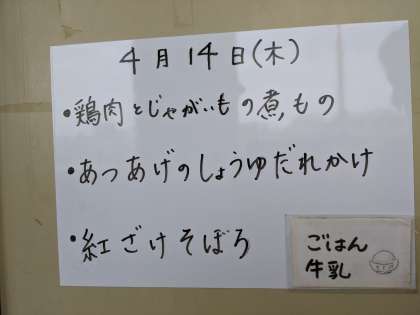 4月14日(木)
•鶏肉とじゃがいもの煮もの
•あつあげのしょうゆだれかけ
•紅ざけそぼろ
ごはん
牛乳